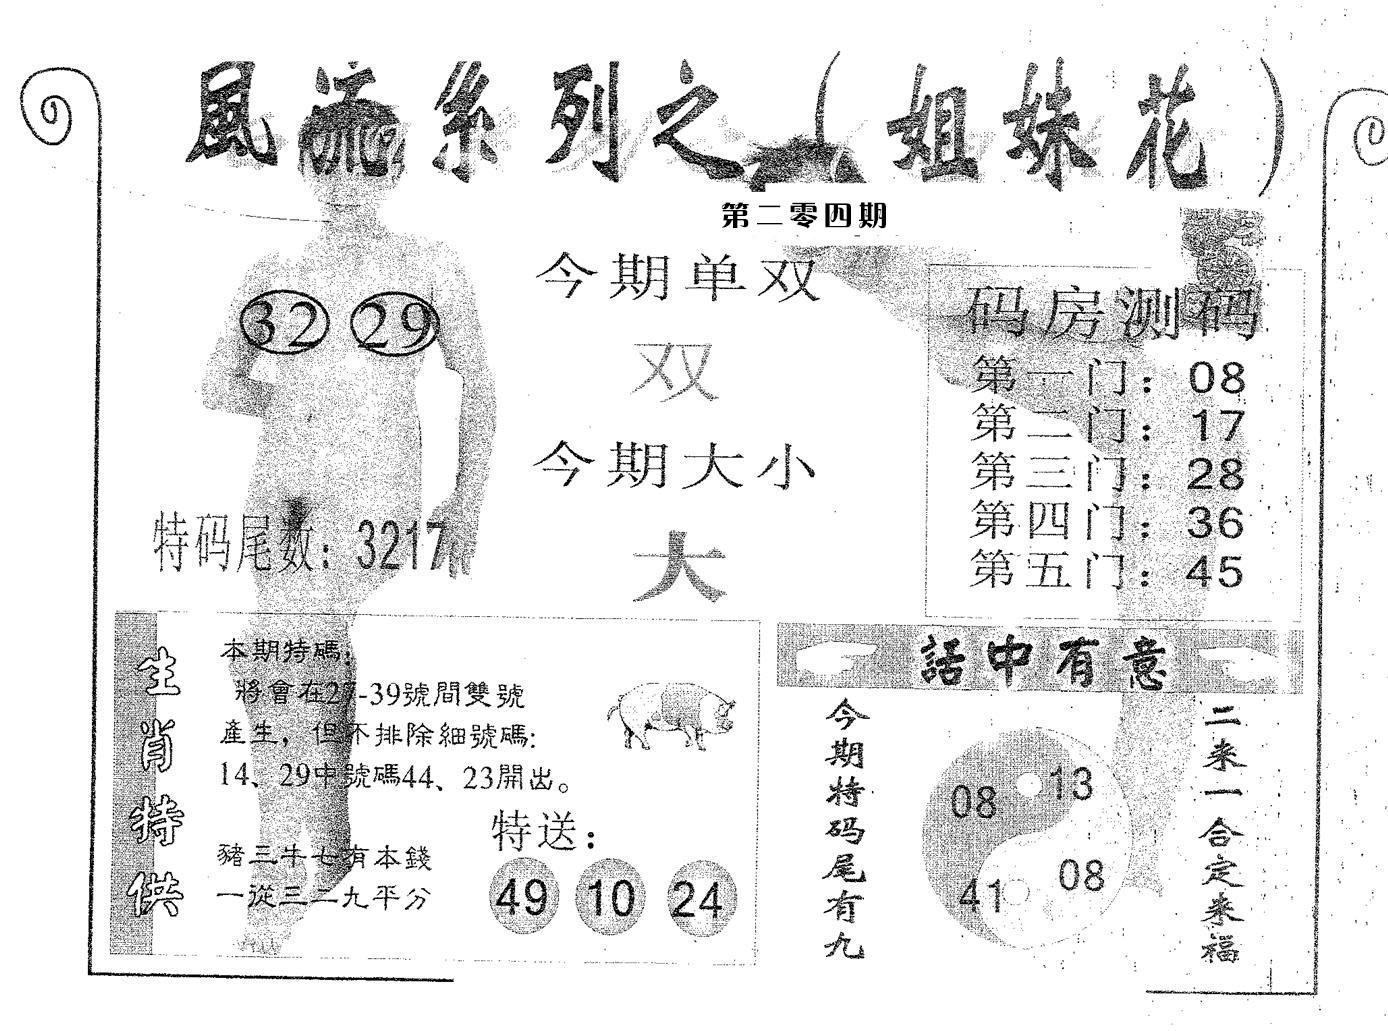 風流系列之（姐妹花）
第二零四期
32 29
今期单双
双
今期大小
大
特码尾数：3217
码房测码
第一门：08
第二门：17
第三门：28
第四门：36
第五门：45
生肖特供
本期特碼：
將會在27-39號間雙號
產生，但不排除細號碼：
14、29中號碼44、23開出。
豬三牛七有本錢
一從三二九平分
特送：
49 10 24
話中有意
今期特码尾有九
08 13
41 08
二来一合定来福